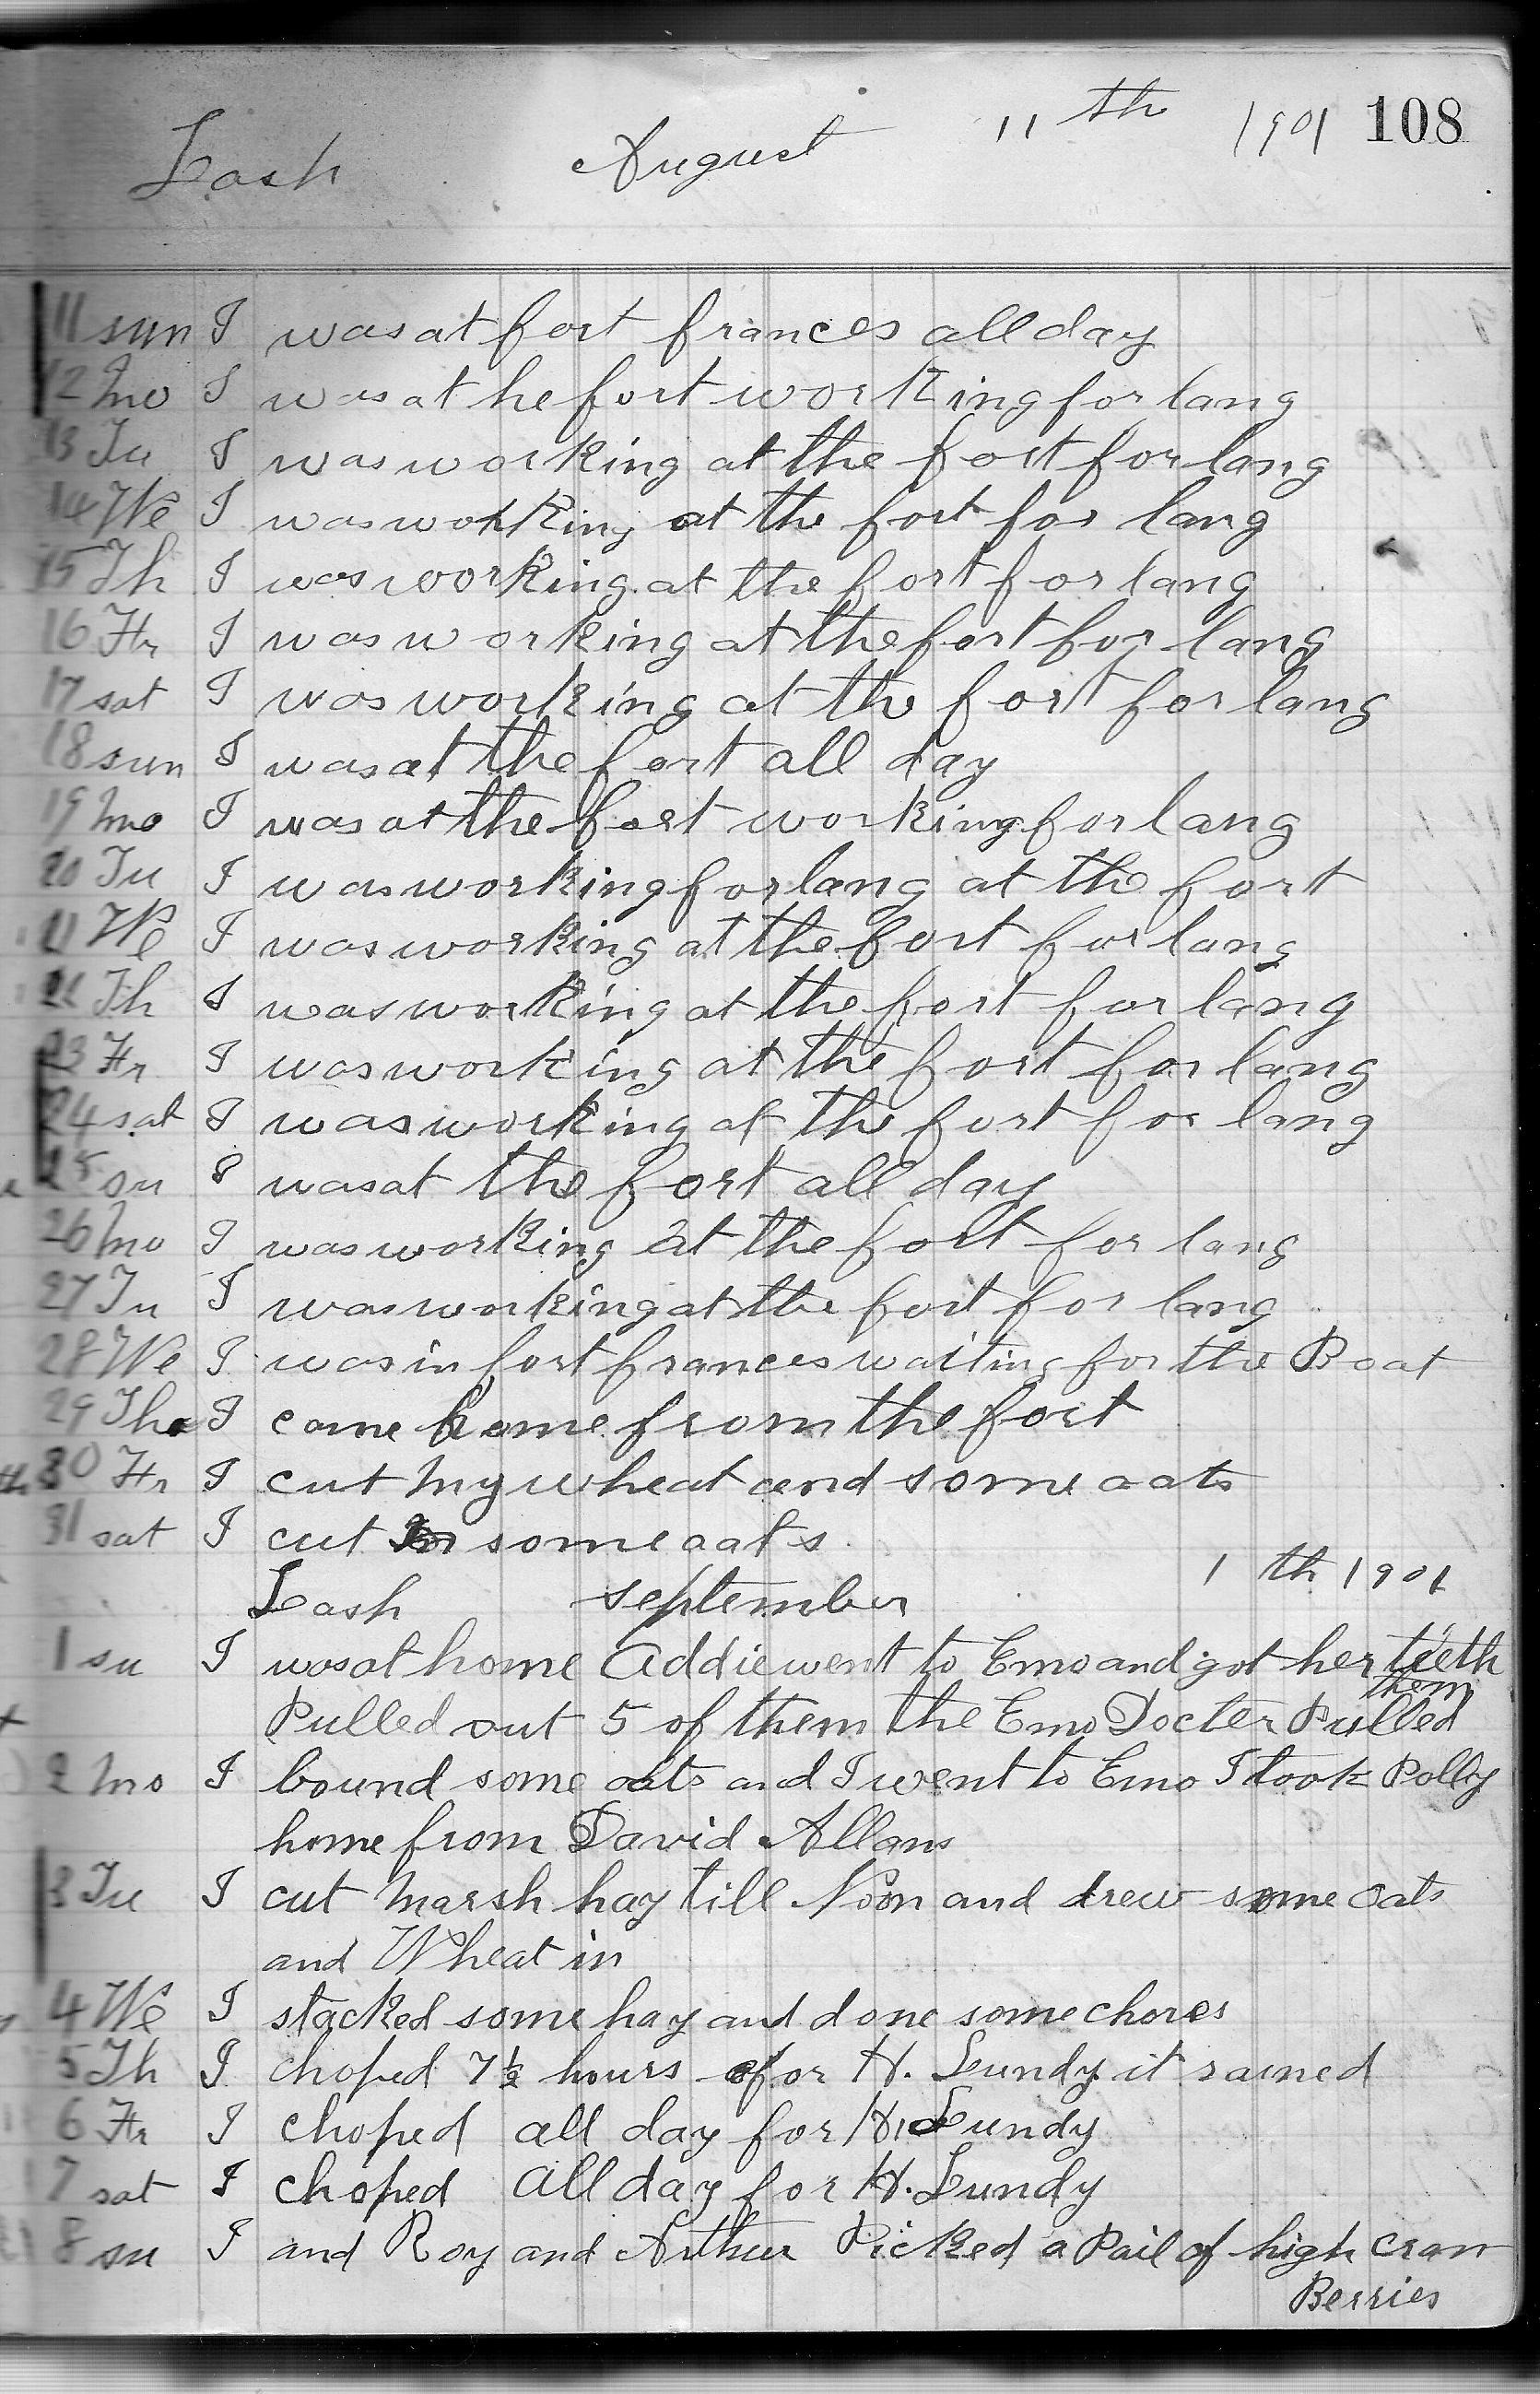 Lash August 11th 1901 108
11 sun I was at fort frances all day
12 Mo I was at he fort working for lang
13 Tu I was working at the fort for lang
14 We I was working at the fort for lang
15 Th I was working at the fort for lang
16 Fr I was working at the fort for lang
17 sat I was working at the fort for lang
18 sun I was at the fort all day
19 Mo I was at the fort working for lang
20 Tu I was working for lang at the fort
21 We I was working at the fort for lang
22 Th I was working at the fort for lang
23 Fr I was working at the fort for lang
24 sat I was working at the fort for lang
25 su I was at the fort all day
26 Mo I was working at the fort for lang
27 Tu I was working at the fort for lang
28 We I was in fort frances waiting for the Boat
29 Th I came home from the fort
30 Fr I cut my wheat and some oats
31 sat I cut some oats
Lash september 1th 1901
1 su I was at home Addie went to Emo and got her teeth
Pulled out 5 of them the Emo Docter Pulled them
2 Mo I bound some oats and I went to Emo I took Polly
home from David Allans
3 Tu I cut Marsh hay till Noon and drew some oats
and Wheat in
4 We I stacked some hay and done some chores
5 Th I choped 7½ hours for H. Lundy it rained
6 Fr I choped all day for H. Lundy
7 sat I choped all day for H. Lundy
8 su I and Roy and Arthur Picked a Pail of high cran
Berries